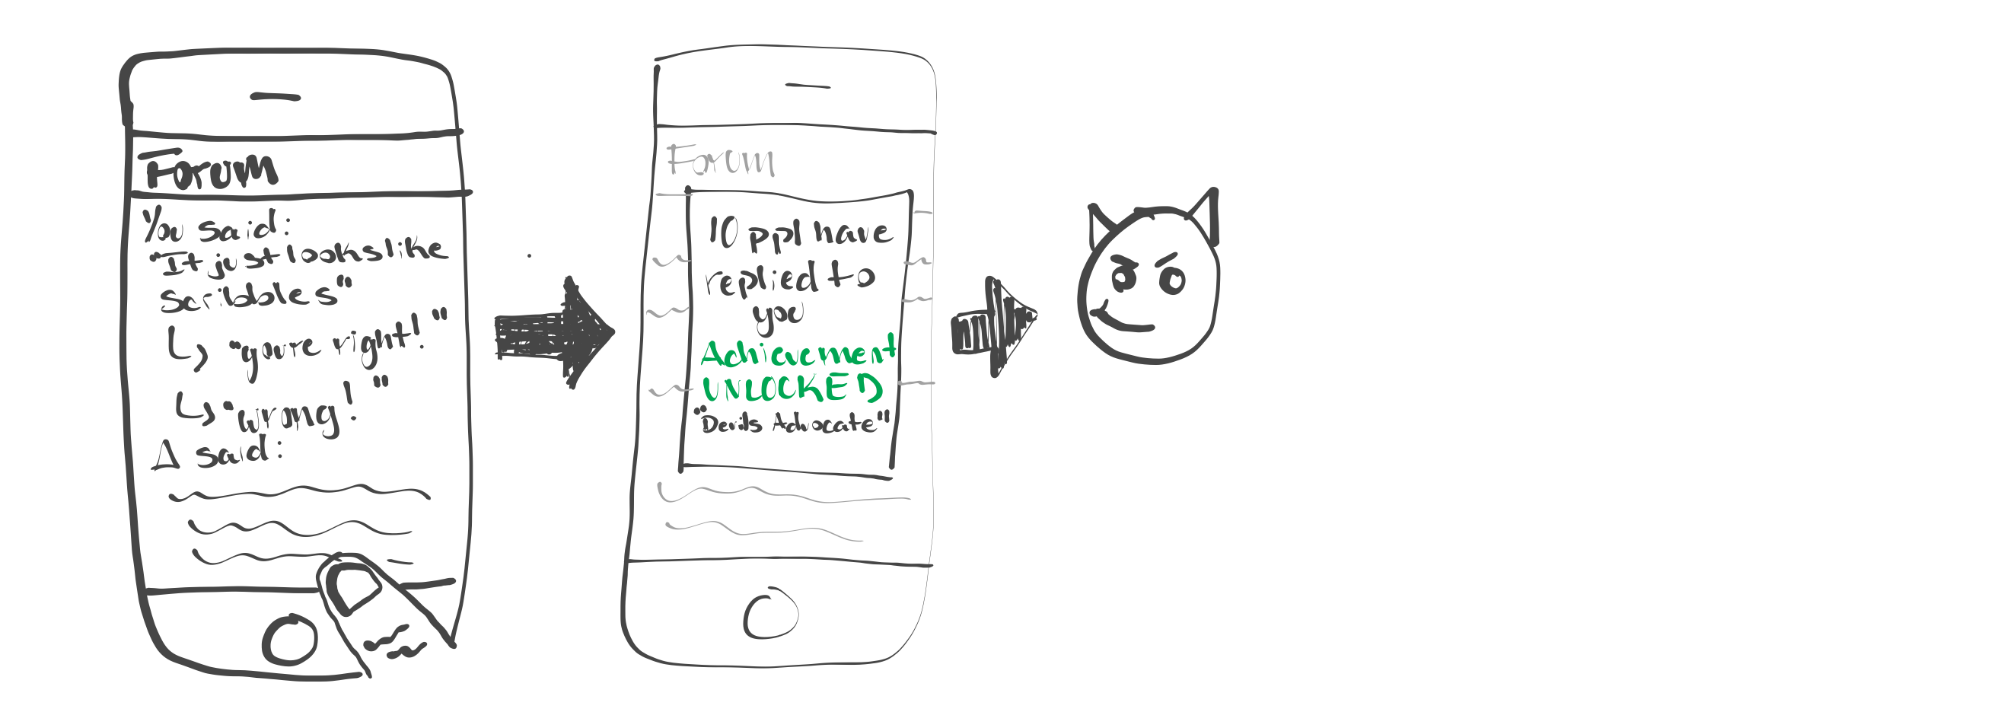 Forum
You said:
"It just looks like
scribbles"
"you're right!"
"wrong!"
Δ said:
Forum
10 ppl have
replied to
you
Achievement
UNLOCKED
"Devils Advocate"